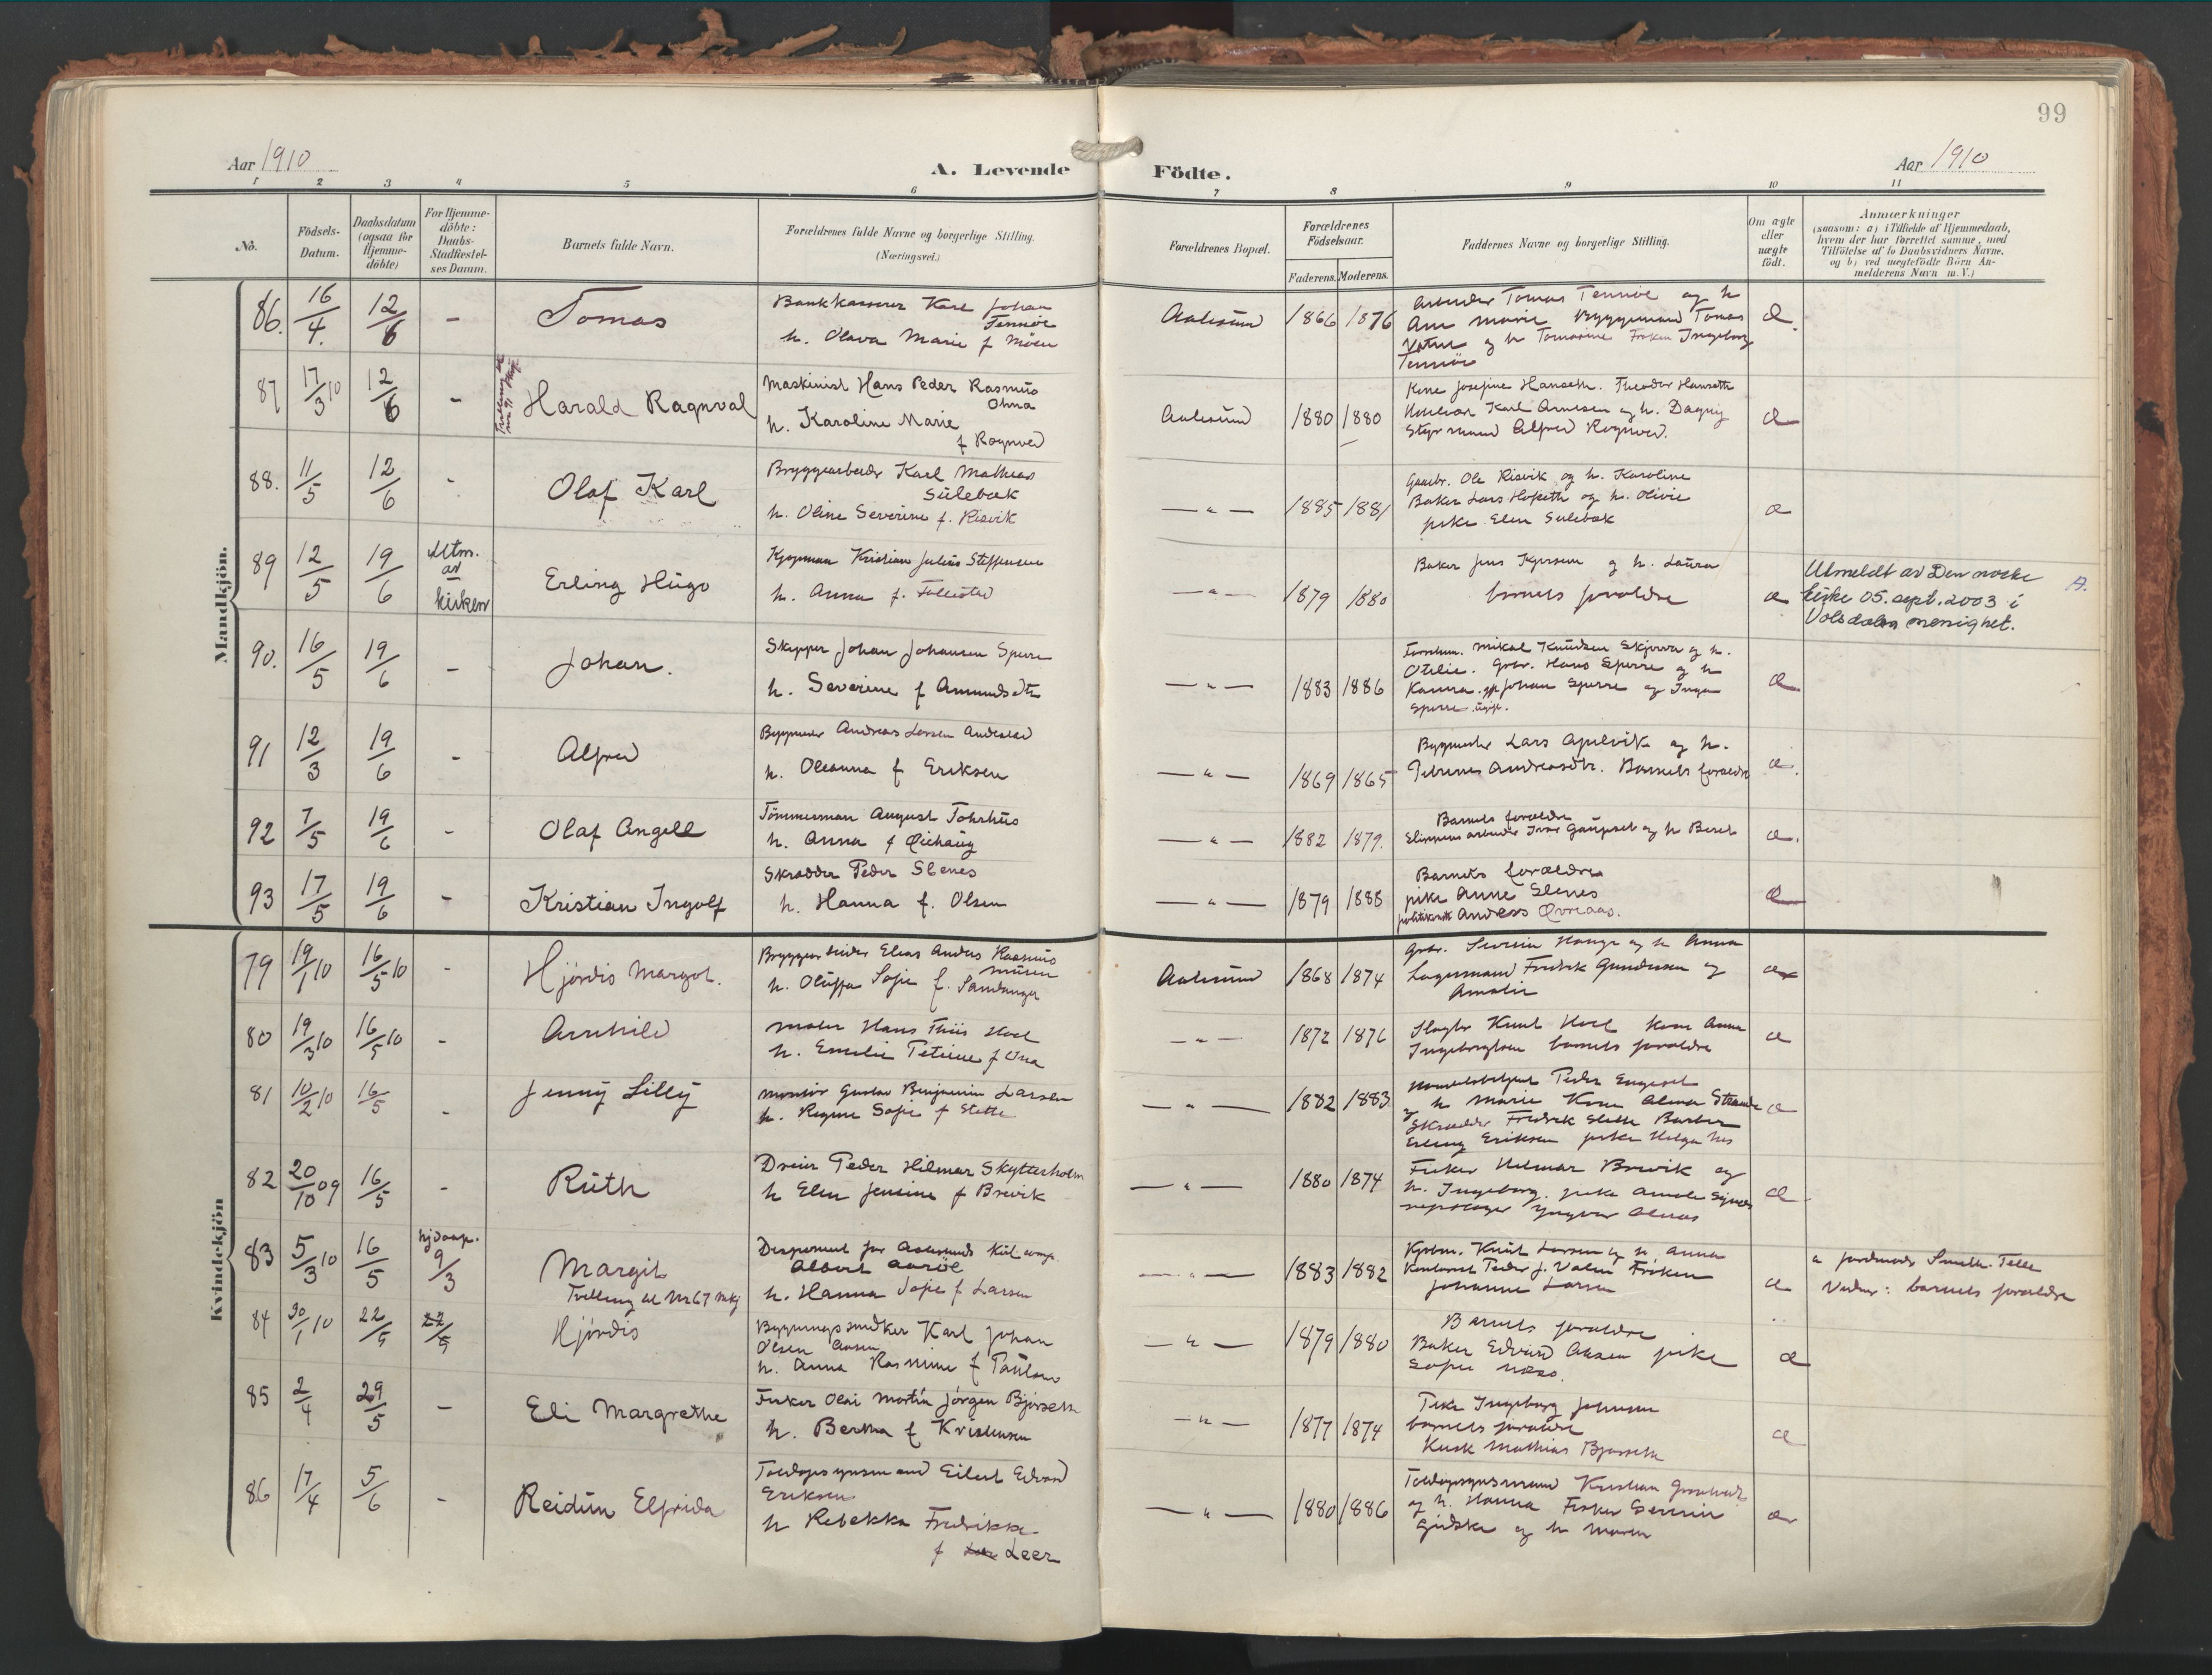 99
Aar 1910
A. Levende
Födte.
Aar 1910
1 2 3 4 5 6 7 8 9 10 11
No.
Födsels-
Datum.
Daabsdatum
(ogsaa for
Hjemme-
döbte)
For Hjemme-
döbte:
Daabs-
Stadfæstel-
ses Datum.
Barnets fulde Navn.
Forældrenes fulde Navne og borgerlige Stilling.
(Næringsvei.)
Forældrenes Bopæl.
Forældrenes
Födselsaar.
Faderens. Moderens.
Faddernes Navne og borgerlige Stilling.
Om ægte
eller
uægte
födt.
Anmærkninger
(saasom: a) i Tilfælde af Hjemmedaab,
hvem der har forrettet samme, med
Tilföielse af to Daabsvidners Navne,
og b) ved uægtefödte Börn An-
melderens Navn m. V.)
Mandkjön.
86. 16/4. 12/6 - Tomas
Bankkasserer Karl Johan
Tennøe
h. Olava Marie f Moen
Aalesund 1866 1876
Arbeider Tomas Tennøe og h
Ane Marie Byggmand Tomas
Vatne og h Tomasine Frøken Ingeborg
Tennøe
æ.
87 17/3 10 12/6 - Harald Ragnval
Maskinist Hans Peder Rasmus
Ohna
h. Karoline Marie
f Rognved
Aalesund 1880 1880
Kone Josefine Hanseth. Theodor Hanseth
Karl Arntsen og h. Dagny
Styrmand Alfred Rognved.
æ
88. 11/5 12/6 - Olaf Karl
Bryggearbeider Karl Mathias
Sulebak
h. Oline Severine f. Risvik
— " — 1885 1881
Gaardbr. Ole Risvik og h. Karoline
Baker Lars Hofseth og h. Olivie
pike Elen Sulebak
æ
89 12/5 19/6 Utm.
av
kirken
Erling Hugo
Kjøpman Kristian Julius Steffensen
h. Anna f. Follestad
— " — 1879 1880
Baker Jens Iversen og h. Laura
barnets forældre
æ
Utmeldt av Den norske
kirke 05. sept. 2003 i
Volsdalen menighet.
A.
90. 16/5 19/6 - Johan.
Skipper Johan Johansen Sperre
h. Severine f Amundsdtr
— " — 1883 1886
Mikal Knudsen Skjerva og h.
Otelie. Gbr. Hans Sperre og h
Johan Sperre og Inga
Sperre. ugift.
æ.
91 12/3 19/6 - Alfred
Andreas Larsen
h. Oleanna f Eriksen
— " — 1869 1865
Bygmester Lars Apelvik og h.
Andreasdtr. Barnets forældre
æ.
92 7/5 19/6 - Olaf Angell
Tömmerman August
h. Anna f
— " — 1882 1879.
Barnets forældre
arbeider Ivar Gaupset og h Beret
æ.
93 17/5 19/6 - Kristian Ingolf
Skrædder Peder Slenes
h. Hanna f. Olsen
— " — 1879 1888
Barnets forældre
pike Anne Slenes
Anders Qvreaas.
æ
Kvindekjön
79 19/1 10 16/5 10 - Hjördis Margot.
Bryggearbeider Elias Anders Rasmus
musen
h. Oluffa Sofie f. Sandanger
Aalesund 1868 1874
Gbr. Severin Hauge og h Anna
Lagermand Fredrik Gundersen og
Amalie
æ
80 19/3 10 16/5 10 - Arnhild
Maler Hans Thiis Hoel
h. Emelie Petrine f Ona
— " — 1872 1876
Slagter Knut Hoel kone Anna
Ingebrigtsen barnets forældre
æ
81 10/2 10 16/5 - Jenny Lilly
Montör Gustav Benjamin Larsen
h. Regine Sofie f Slette
— " — 1882 1883
Peder Engeset
og h Marie Kone Alma Strande
Skrædder Fredrik Slette Barber
Erling Eriksen pike Helga
æ
82 20/10 09 16/5 - Ruth
Dreier Peder Hilmar Skytterholm
h Elen Jensine f Brevik
— " — 1880 1874
Fisker Helmar Brevik og
h. Ingeborg. pike
Yngvar Alnæs
æ
83 5/3 10 16/5 hjdaap.
9/3
Margit
Tvilling til Nr 67 mkj
Disponent for Aalesunds Kul comp.
Albert Aarøe
h. Hanna Sofie f Larsen
— " — 1883 1882
Kjøbm. Knut Larsen og h. Anna
Kontorist Peder J. Valen Frøken
Johanne Larsen
æ
a jordmoder Telle
Vidner: barnets forældre
84 30/1 10 22/5 22/5 Hjördis
Bygningssnedker Karl Johan
Olsen Aasen
h. Anna Rasmine f
— " — 1879 1880
Barnets forældre
Baker Edvard Aasen pike
Sofie Næss.
æ
85 2/4 29/5 - Eli Margrethe
Fisker Olai Martin Jörgen Bjørseth
h. Bertha f Kristensen
— " — 1877 1874
Pike Ingeborg Johnsen
barnets forældre
Kusk Mathias Bjørseth
æ
86 17/4 5/6 - Reidun Elfrida
Toldopsynsmand Eilert Edvard
Eriksen
h Rebekka Fredrikke
f Leer
— " — 1880 1886
Toldopsynsmand Kristian
og h. Hanna Fisker Severin
Giske og h Maren
æ